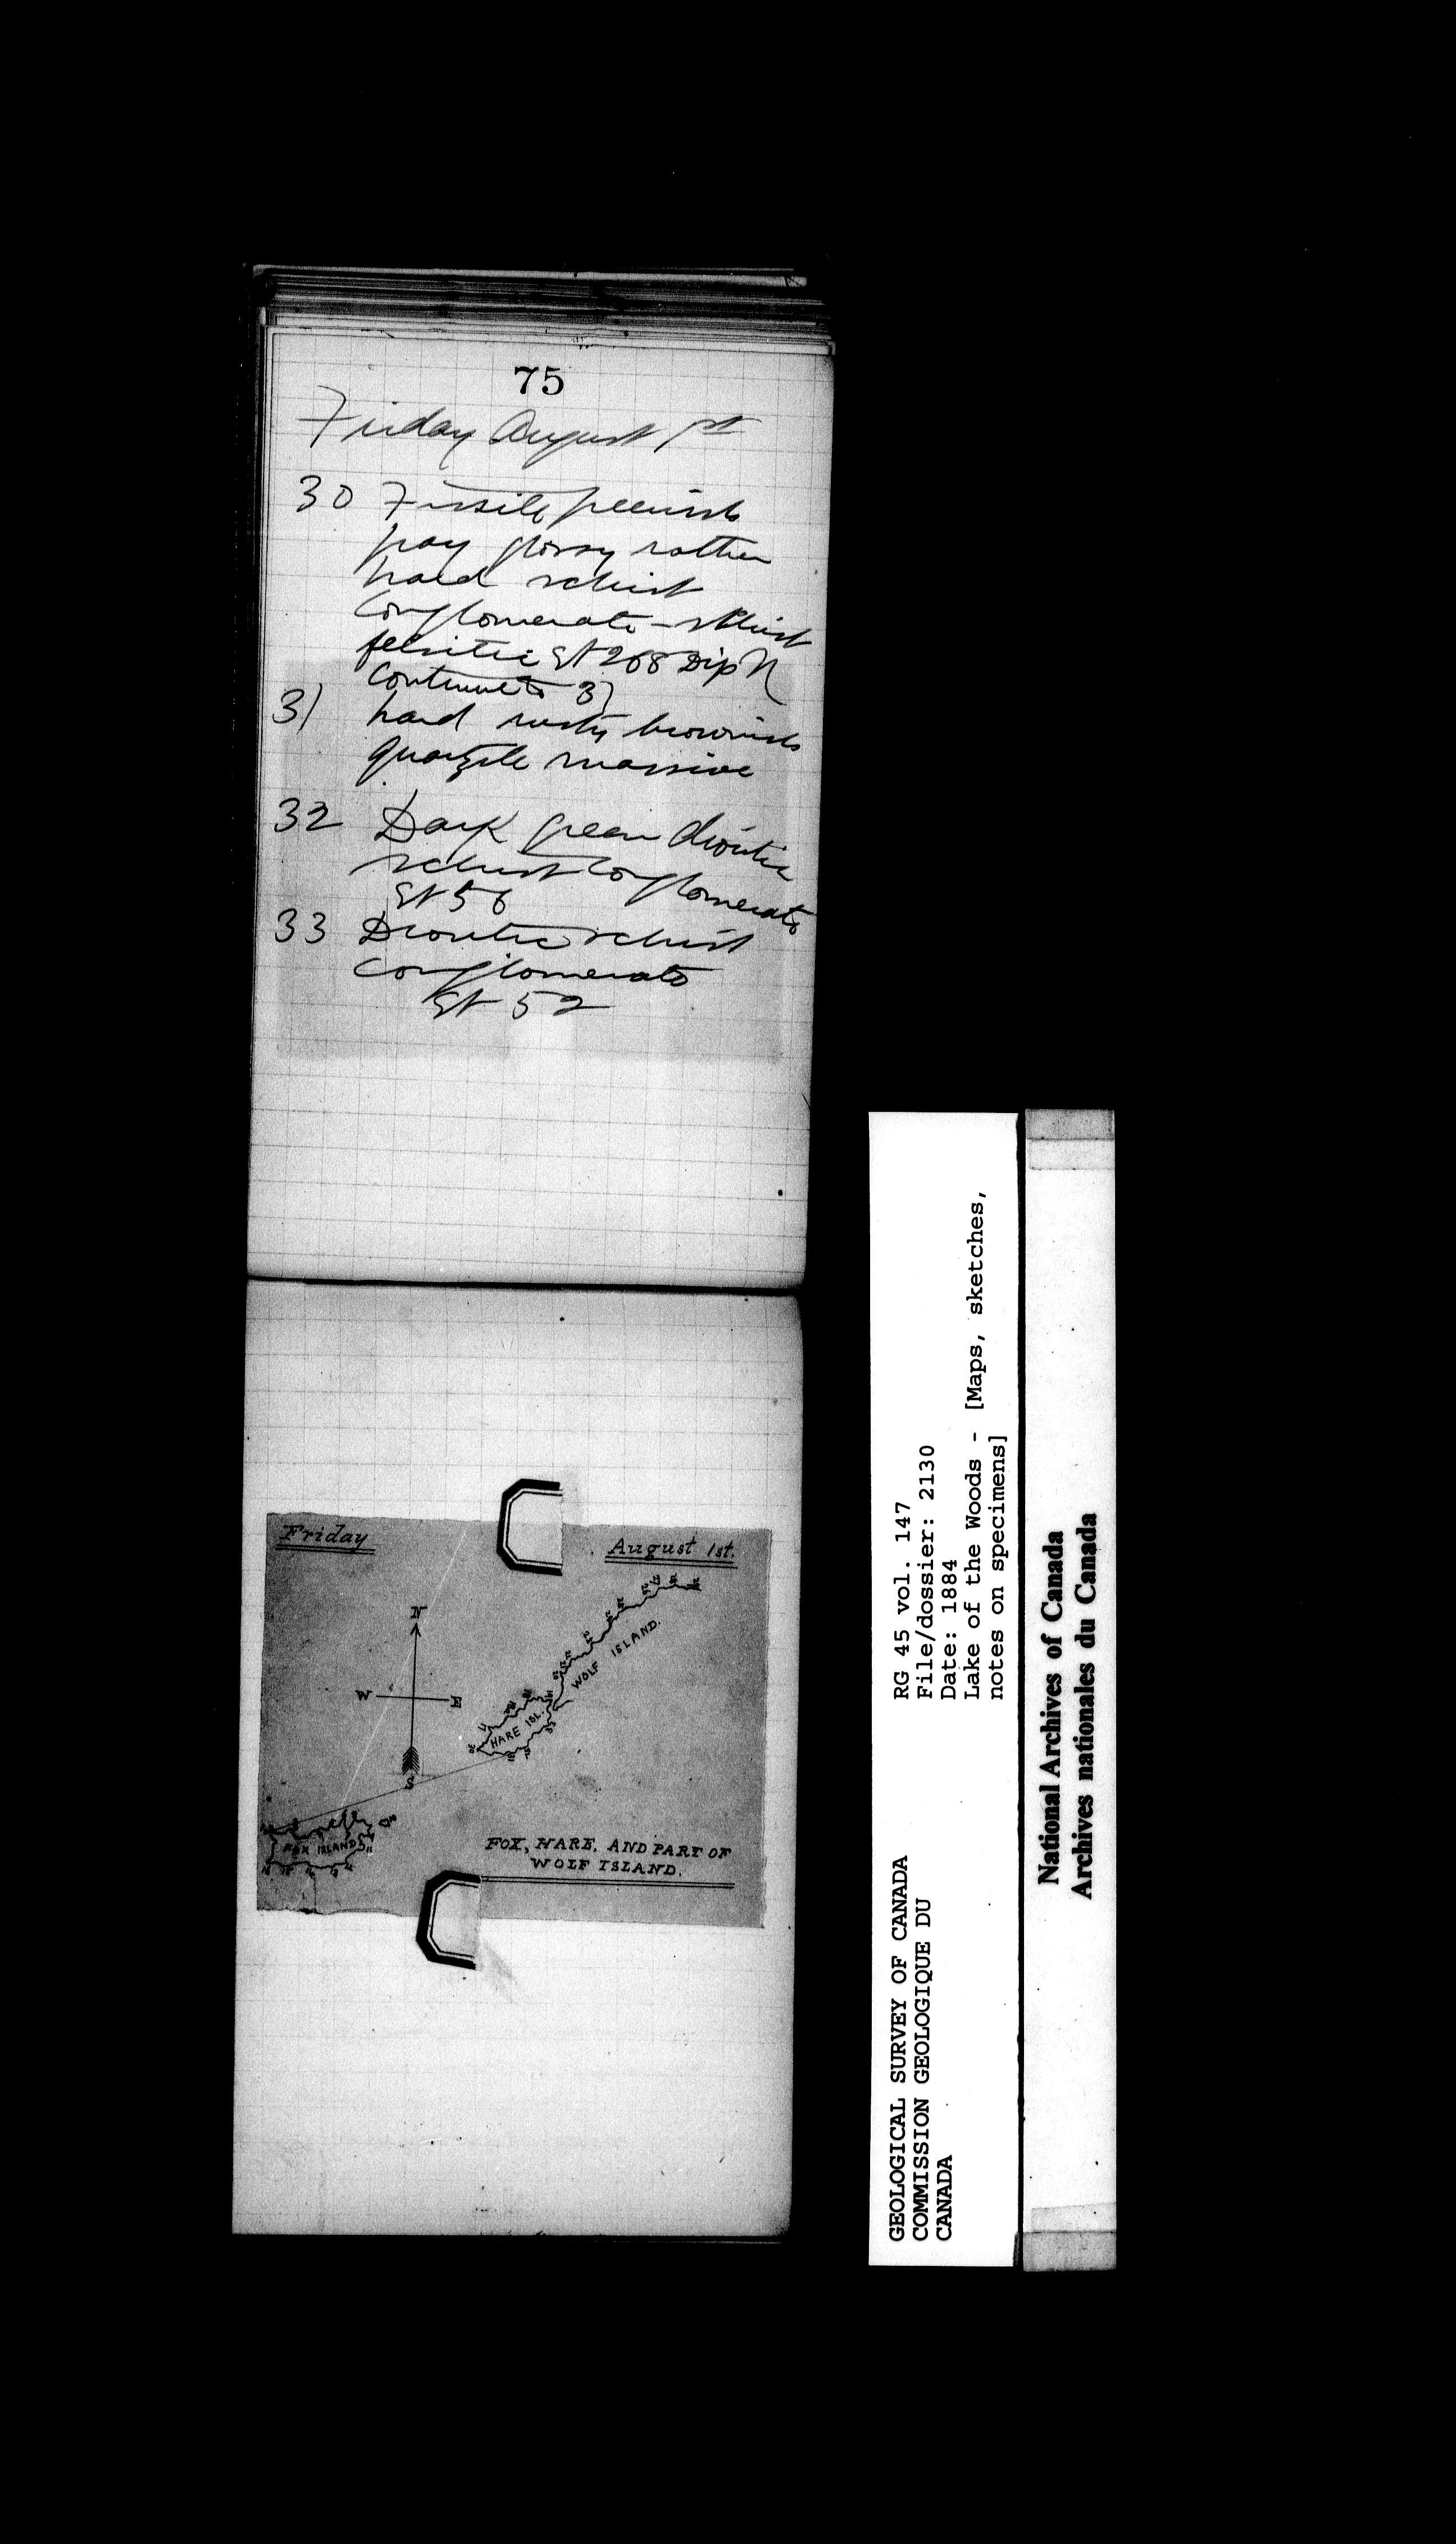 75
Friday August 1st
30 Fissile greenish
gray glossy rather
hard schist
Conglomerate – schist
felsitic St 268 Dip N
Continue to 31
31 hard rusty brownish
quartzite massive
32 Dark green dioritic
schist conglomerate
St 56
33 Dioritic schist
conglomerate
St 52
Friday
August 1st.
N
W
E
S
WOLF ISLAND.
HARE ISL.
FOX ISLAND
FOX, HARE, AND PART OF
WOLF ISLAND.
GEOLOGICAL SURVEY OF CANADA
COMMISSION GEOLOGIQUE DU
CANADA
RG 45 vol. 147
File/dossier: 2130
Date: 1884
Lake of the Woods - [Maps, sketches,
notes on specimens]
National Archives of Canada
Archives nationales du Canada